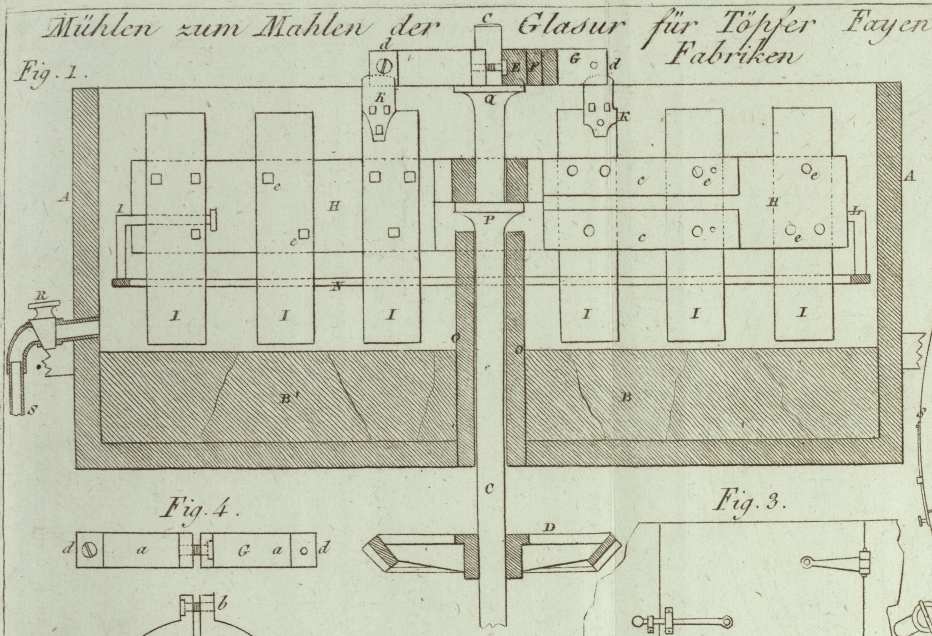 Mühlen zum Mahlen der Glasur für Töpfer Fayen
Fabriken
Fig. 1.
C
d
E F G d
K
Q
K
A
e
H
c e
e
H
A
I
L
e
P
c
e
N
R
I I I
I I I
O O
S
B
B
S
C
Fig. 4.
Fig. 3.
D
d a G a d
b